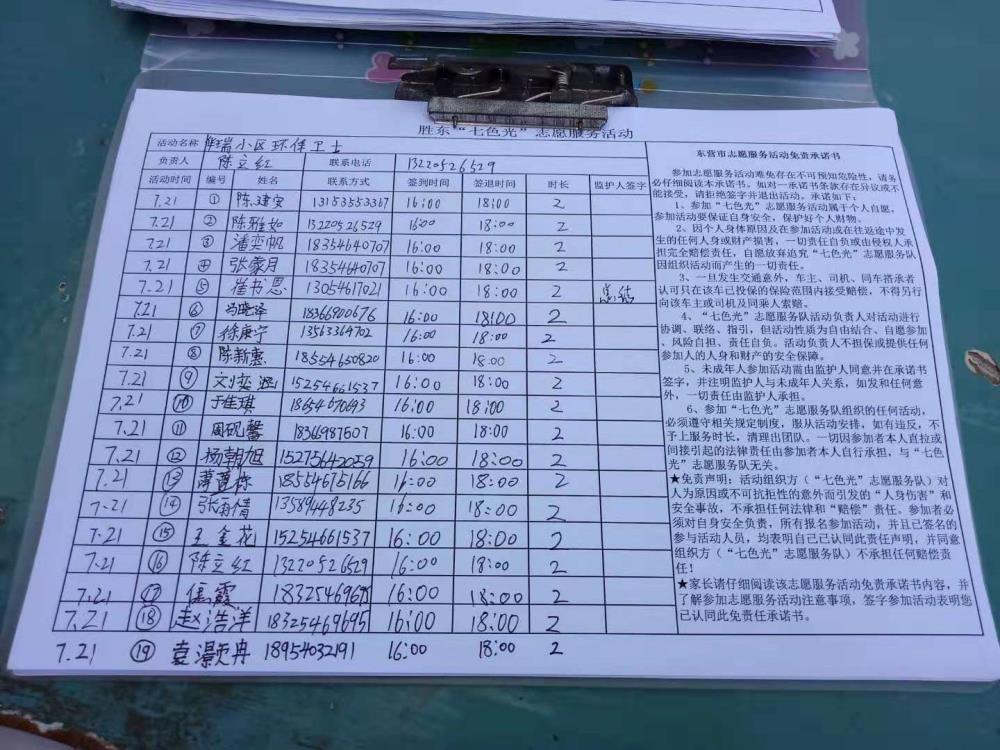 胜东“七色光”志愿服务活动
活动名称 华瑞小区环保卫士
负责人 陈立红 联系电话 13220526529
活动时间 编号 姓名 联系方式 签到时间 签退时间 时长 监护人签字
7.21 ① 陈建安 13153553367 16:00 18:00 2
7.21 ② 陈雅如 13220526529 16:00 18:00 2
7.21 ③ 潘奕帆 18354640707 16:00 18:00 2
7.21 ④ 张蒙月 18354640707 16:00 18:00 2
7.21 ⑤ 崔书恩 13054617021 16:00 18:00 2
7.21 ⑥ 冯晓泽 18366900676 16:00 18:00 2
7.21 ⑦ 徐康宁 13563364702 16:00 18:00 2
7.21 ⑧ 陈新惠 18554650820 16:00 18:00 2
7.21 ⑨ 刘奕涵 15254661537 16:00 18:00 2
7.21 ⑩ 于佳琪 18654670693 16:00 18:00 2
7.21 ⑪ 周砚馨 18366987507 16:00 18:00 2
7.21 ⑫ 杨朝旭 15275642059 16:00 18:00 2
7.21 ⑬ 18554675166 16:00 18:00 2
7.21 ⑭ 张雨倩 13589448235 16:00 18:00 2
7.21 ⑮ 王金花 15254661537 16:00 18:00 2
7.21 ⑯ 陈立红 13220526529 16:00 18:00 2
7.21 ⑰ 霞 18325469695 16:00 18:00 2
7.21 ⑱ 赵浩洋 18325469695 16:00 18:00 2
7.21 ⑲ 袁灏冉 18954032191 16:00 18:00 2
东营市志愿服务活动免责承诺书
参加志愿服务活动难免存在不可预知危险性，请务
必仔细阅读本承诺书。如对一承诺书条款存在异议或不
能接受，请拒绝签字并退出活动。承诺如下：
1、参加“七色光”志愿服务活动属于个人自愿，
参加活动要保证自身安全，保护好个人财物。
2、因个人身体原因及在参加活动或在往返途中发
生的任何人身或财产损害，一切责任自负或由侵权人承
担完全赔偿责任，自愿放弃追究“七色光”志愿服务队
因组织活动而产生的一切责任。
3、一旦发生交通意外，车主、司机、同车搭承者
认可只在该车已投保的保险范围内接受赔偿，不得另行
向该车主或司机及同乘人索赔。
4、“七色光”志愿服务队活动负责人对活动进行
协调、联络、指引，但活动性质为自由结合、自愿参加
、风险自担、责任自负。活动负责人不担保或提供任何
参加人的人身和财产的安全保障。
5、未成年人参加活动需由监护人同意并在承诺书
签字，并注明监护人与未成年人关系，如发和任何意
外，一切责任由监护人承担。
6、参加“七色光”志愿服务队组织的任何活动，
必须遵守相关规定制度，服从活动安排，如有违反，不
予上服务时长，清理出团队。一切因参加者本人直拉或
间接引起的法律责任由参加者本人自行承担，与“七色
光”志愿服务队无关。
★免责声明：活动组织方（“七色光”志愿服务队）对
人为原因或不可抗拒性的意外而引发的“人身伤害”和
安全事故，不承担任何法律和“赔偿”责任。参加者必
须对自身安全负责，所有报名参加活动，并且已签名的
参与活动人员，均表明自己已认同此责任声明，并同意
组织方（“七色光”志愿服务队）不承担任何赔偿责
任！
★家长请仔细阅读该志愿服务活动免责承诺书内容，并
了解参加志愿服务活动注意事项，签字参加活动表明您
已认同此免责任承诺书。